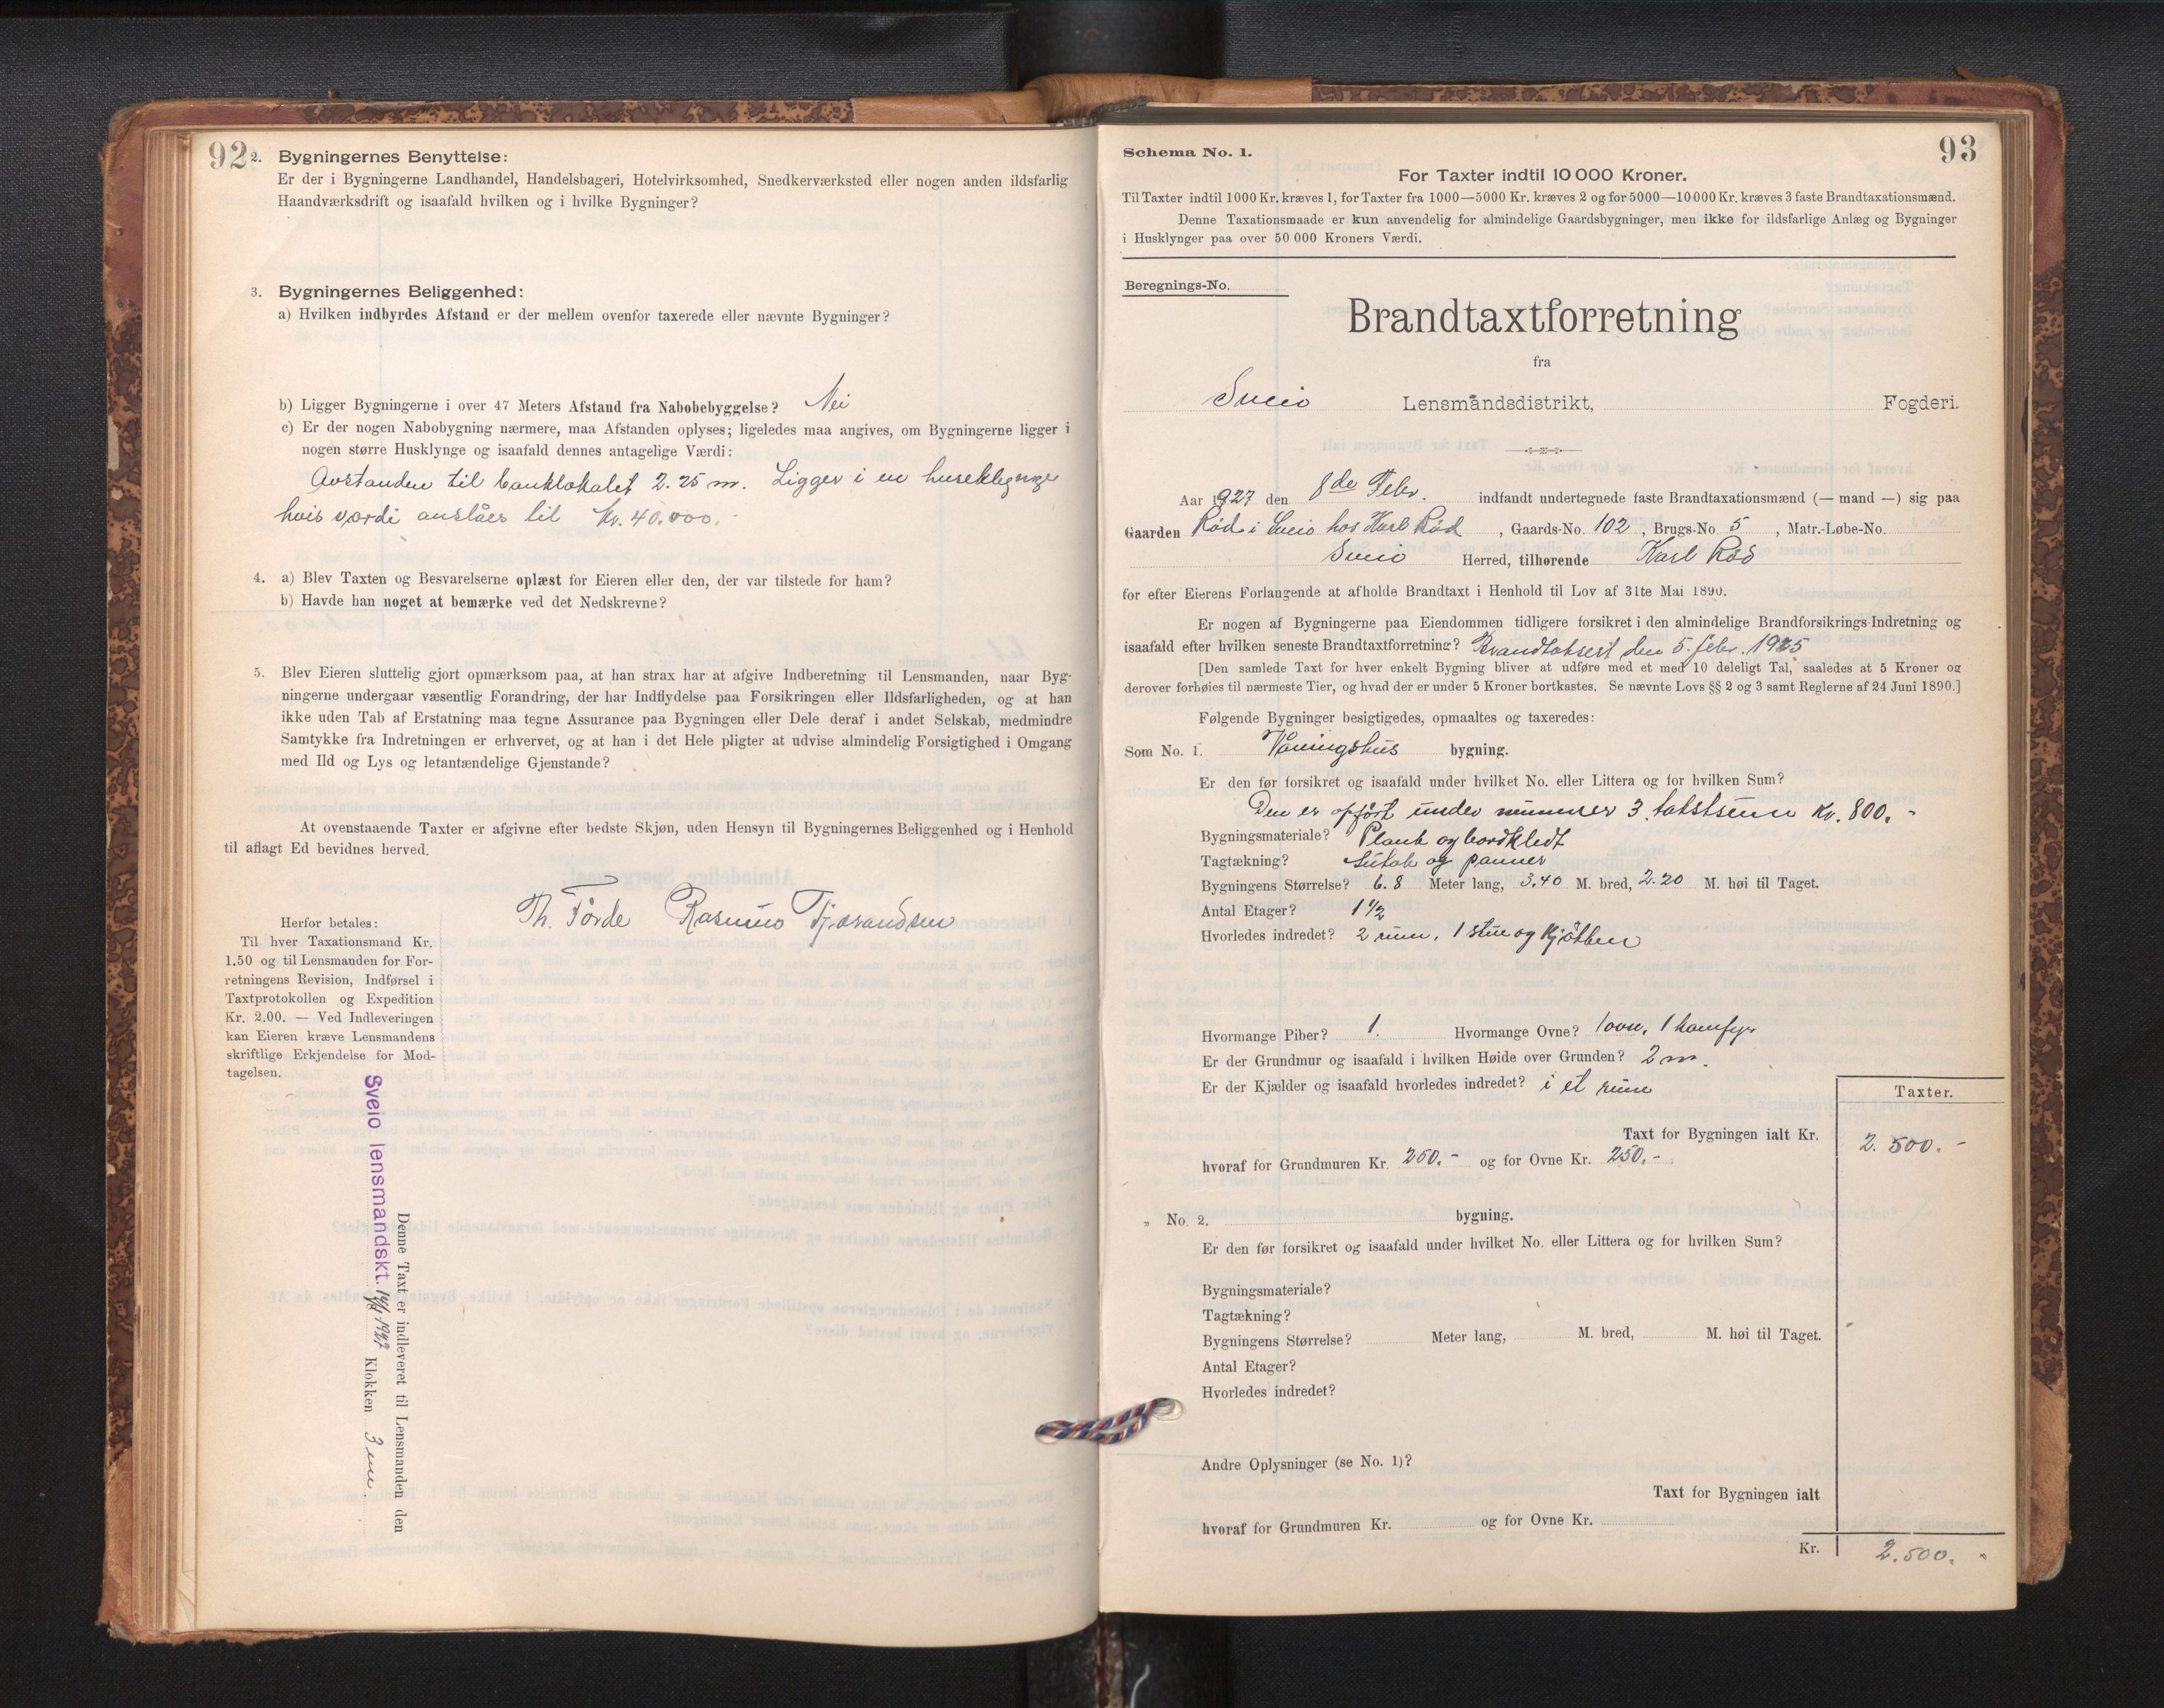 92
2. Bygningernes Benyttelse:
Er der i Bygningerne Landhandel, Handelsbageri, Hotelvirksomhed, Snedkerværksted eller nogen anden ildsfarlig
Haandværksdrift og isaafald hvilken og i hvilke Bygninger?
3. Bygningernes Beliggenhed:
a) Hvilken indbyrdes Afstand er der mellem ovenfor taxerede eller nævnte Bygninger?
b) Ligger Bygningerne i over 47 Meters Afstand fra Nabobebyggelse? Nei
c) Er der nogen Nabobygning nærmere, maa Afstanden oplyses; ligeledes maa angives, om Bygningerne ligger i
nogen større Husklynge og isaafald dennes antagelige Værdi:
Avstanden til banklokalet 2.25 m. Ligger i en huseklynge
hvis værdi anslåes til Kr. 40.000.-
4. a) Blev Taxten og Besvarelserne oplæst for Eieren eller den, der var tilstede for ham?
b) Havde han noget at bemærke ved det Nedskrevne?
5. Blev Eieren sluttelig gjort opmærksom paa, at han strax har at afgive Indberetning til Lensmanden, naar Byg-
ningerne undergaar væsentlig Forandring, der har Indflydelse paa Forsikringen eller Ildsfarligheden, og at han
ikke uden Tab af Erstatning maa tegne Assurance paa Bygningen eller Dele deraf i andet Selskab, medmindre
Samtykke fra Indretningen er erhvervet, og at han i det Hele pligter at udvise almindelig Forsigtighed i Omgang
med Ild og Lys og letantændelige Gjenstande?
At ovenstaaende Taxter er afgivne efter bedste Skjøn, uden Hensyn til Bygningernes Beliggenhed og i Henhold
til aflagt Ed bevidnes herved.
Th. Førde Rasmus Tjernandsen
Herfor betales:
Til hver Taxationsmand Kr.
1.50 og til Lensmanden for For-
retningens Revision, Indførsel i
Taxtprotokollen og Expedition
Kr. 2.00. — Ved Indleveringen
kan Eieren kræve Lensmandens
skriftlige Erkjendelse for Mod-
tagelsen.
Denne Taxt er indleveret til Lensmanden den
Sveio lensmandskt. 1927 Klokken 3 em.
93
Schema No. 1.
For Taxter indtil 10 000 Kroner.
Til Taxter indtil 1000 Kr. kræves 1, for Taxter fra 1000—5000 Kr. kræves 2 og for 5000—10000 Kr. kræves 3 faste Brandtaxationsmænd.
Denne Taxationsmaade er kun anvendelig for almindelige Gaardsbygninger, men ikke for ildsfarlige Anlæg og Bygninger
i Husklynger paa over 50 000 Kroners Værdi.
Beregnings-No.
Brandtaxtforretning
fra
Sveio Lensmandsdistrikt, Fogderi.
Aar 1927 den 8de Febr. indfandt undertegnede faste Brandtaxationsmænd (— mand —) sig paa
Gaarden Rød i Sveio hos Karl Rød, Gaards-No. 102, Brugs-No. 5, Matr.-Løbe-No.
Sveio Herred, tilhørende Karl Rød
for efter Eierens Forlangende at afholde Brandtaxt i Henhold til Lov af 31te Mai 1890.
Er nogen af Bygningerne paa Eiendommen tidligere forsikret i den almindelige Brandforsikrings-Indretning og
isaafald efter hvilken seneste Brandtaxtforretning? Brandtaksert den 5. febr. 1925
[Den samlede Taxt for hver enkelt Bygning bliver at udføre med et med 10 deleligt Tal, saaledes at 5 Kroner og
derover forhøies til nærmeste Tier, og hvad der er under 5 Kroner bortkastes. Se nævnte Lovs §§ 2 og 3 samt Reglerne af 24 Juni 1890.]
Følgende Bygninger besigtigedes, opmaaltes og taxeredes:
Som No. 1. Våningshus bygning.
Er den før forsikret og isaafald under hvilket No. eller Littera og for hvilken Sum?
Den er opført under nummer 3. takstsum Kr. 800.-
Bygningsmateriale? Plank og bordkledt
Tagtækning? sutak og panner
Bygningens Størrelse? 6.8 Meter lang, 3.40 M. bred, 2.20 M. høi til Taget.
Antal Etager? 1 1/2
Hvorledes indredet? 2 rum, 1 stue og kjøkken
Hvormange Piber? 1. Hvormange Ovne? 1 ovn, 1 komfyr
Er der Grundmur og isaafald i hvilken Høide over Grunden? 2 m.
Er der Kjælder og isaafald hvorledes indredet? i et rum
Taxter.
Taxt for Bygningen ialt Kr. 2.500.-
hvoraf for Grundmuren Kr. 250.- og for Ovne Kr. 250.-
„ No. 2. bygning.
Er den før forsikret og isaafald under hvilket No. eller Littera og for hvilken Sum?
Bygningsmateriale?
Tagtækning?
Bygningens Størrelse? Meter lang, M. bred, M. høi til Taget.
Antal Etager?
Hvorledes indredet?
Andre Oplysninger (se No. 1)?
Taxt for Bygningen ialt
hvoraf for Grundmuren Kr. og for Ovne Kr.
Kr. 2.500.-